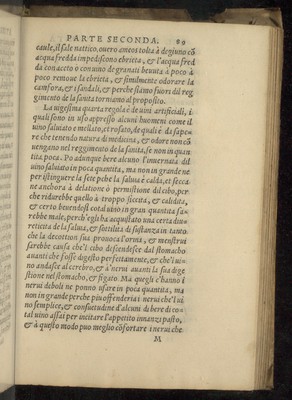 PARTE SECONDA. 89
caule, il sale nattico, ouero ameos tolta à degiuno cõ
acqua fredda impediscono ebrietà, & l'acqua fred
da con aceto ò con uino de granati beuuta à poco à
poco remoue la ebrietà, & similmente odorare la
camfora, & i sandali, & perche siamo fuori dil reg
gimento de la sanita torniamo al proposito.
La uigesima quarta regola è de uini artificiali, i
quali sono in uso appresso alcuni huomeni come il
uino saluiato e mellato, et rosato, de quali è da sape-
re che tenendo natura di medicina, & odore non cõ
uengano nel reggimento de la sanita, se non in quan
tita poca. Po adunque bere alcuno l'inuernata dil
uino saluiato in poca quantita, ma non in grande ne
per istinguere la sete pche la salua è calda, et secca
ne anchora à delatione ò permistione dil cibo, per-
che ridurebbe quello à troppo siccita, & calidita,
& certo beuendosi cotal uino in gran quantita sa-
rebbe male, perch'egli ha acquistato una certa diu-
reticita de la salua, & sottilita di sustanza in tanto
che la decottion sua prouoca l'orma, & menstrui
sarebbe causa che'l cibo descendesse dal stomacho
auanti che fosse digesto perfettamente, & che'l ui-
no andasse al cerebro, & à nerui auanti la sua dige
stione nel stomacho, & figato. Ma quegli c'hanno i
nerui deboli ne ponno usare in poca quantita, ma
non in grande perche piu offenderia i nerui che'l ui
no semplice, & consuetudine d'alcuni di bere di co-
tal uino assai per incitare l'appetito innanzi pasto,
& à questo modo puo meglio cõfortare i nerui che
M